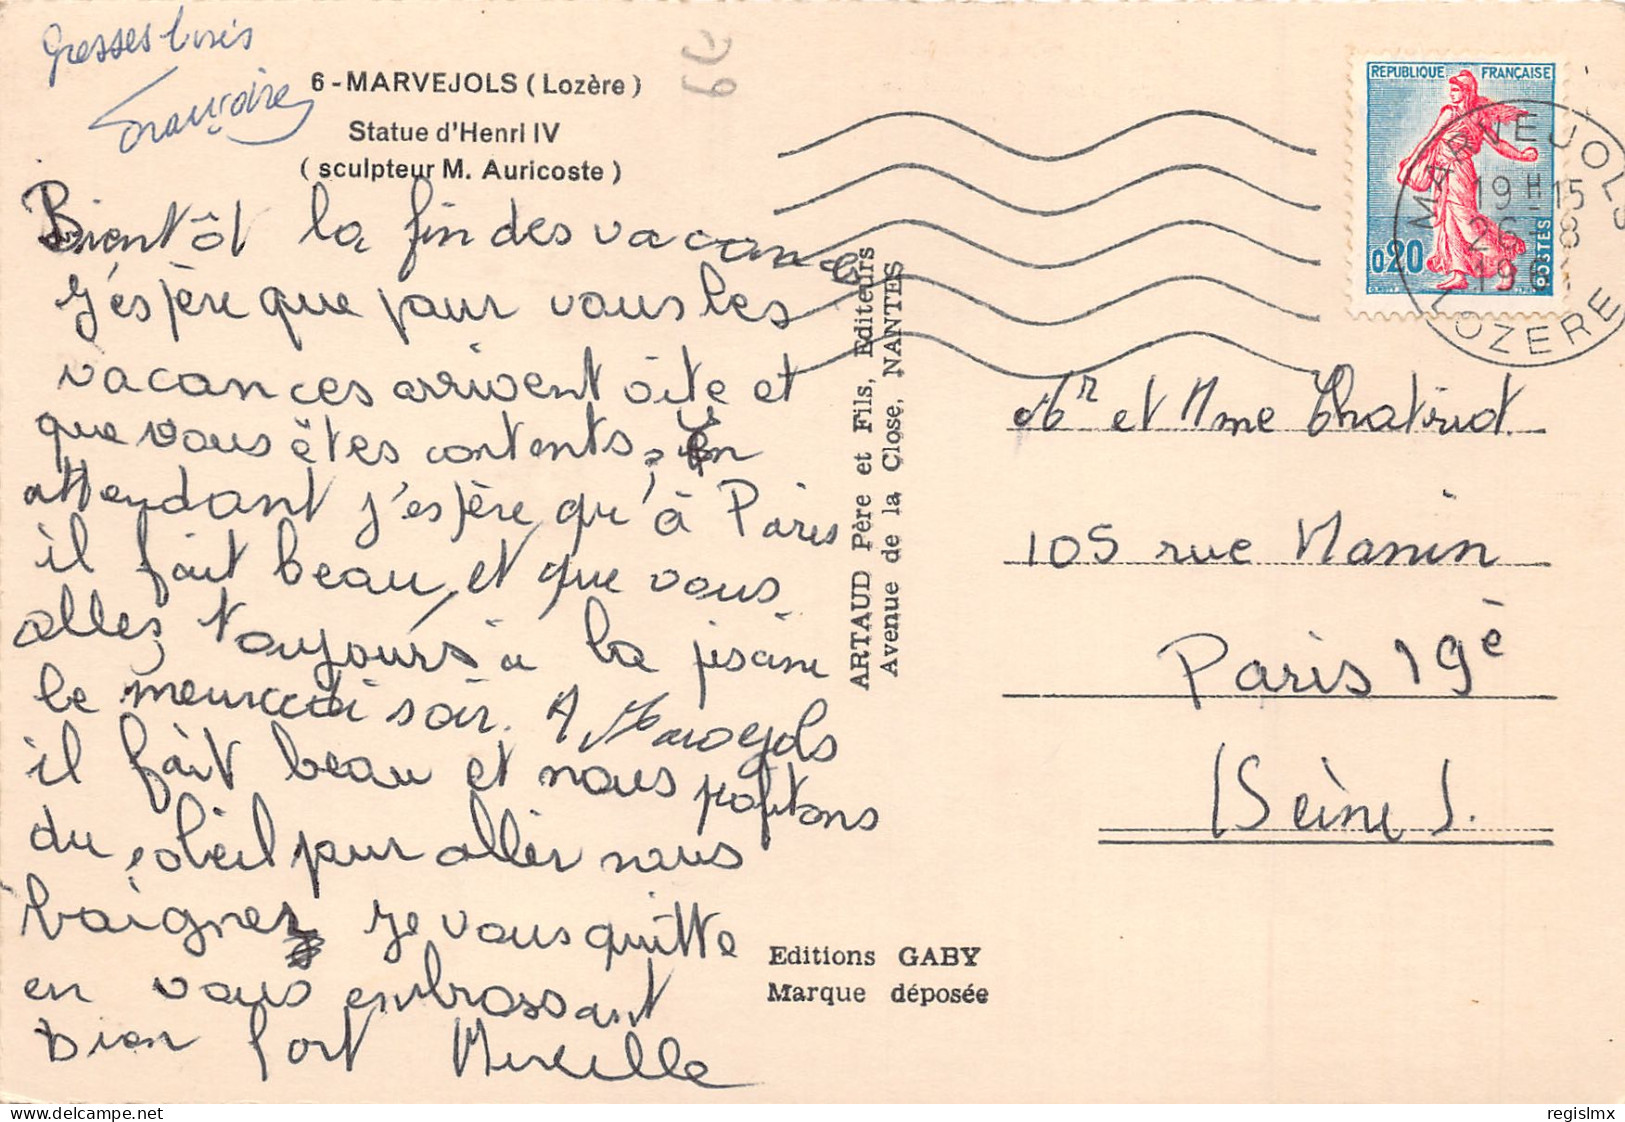 Grosses bises
Françoise
6 - MARVEJOLS ( Lozère )
Statue d'Henri IV
( sculpteur M. Auricoste )
Bientôt la fin des vacances
J'espère que pour vous les
vacances arrivent vite et
que vous êtes contents, En
attendant j'espère qu'à Paris
il fait beau, et que vous
allez toujours à la piscine
le mercredi soir. A Marvejols
il fait beau et nous profitons
du soleil pour aller nous
baigner Je vous quitte
en vous embrassant
bien fort Mireille
ARTAUD Père et Fils, Editeurs
Avenue de la Close, NANTES
Editions GABY
Marque déposée
REPUBLIQUE FRANÇAISE
0,20
POSTES
MARVEJOLS
19H15
26-8
196
LOZERE
Mr et Mme Chatriot
105 rue Manin
Paris 19è
(Seine).
regislmx